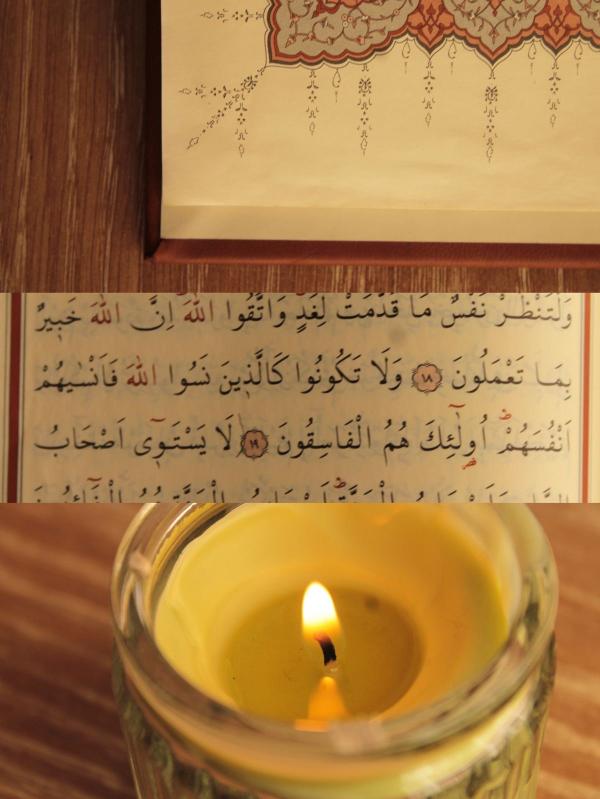 وَلْتَنْظُرْ نَفْسٌ مَا قَدَّمَتْ لِغَدٍ وَاتَّقُوا اللّٰهَ اِنَّ اللّٰهَ خَبِيرٌ
بِمَا تَعْمَلُونَ ﴿١٨﴾ وَلَا تَكُونُوا كَالَّذِينَ نَسُوا اللّٰهَ فَاَنْسٰيهُمْ
اَنْفُسَهُمْ اُولٰٓئِكَ هُمُ الْفَاسِقُونَ ﴿١٩﴾ لَا يَسْتَوٖٓى اَصْحَابُ